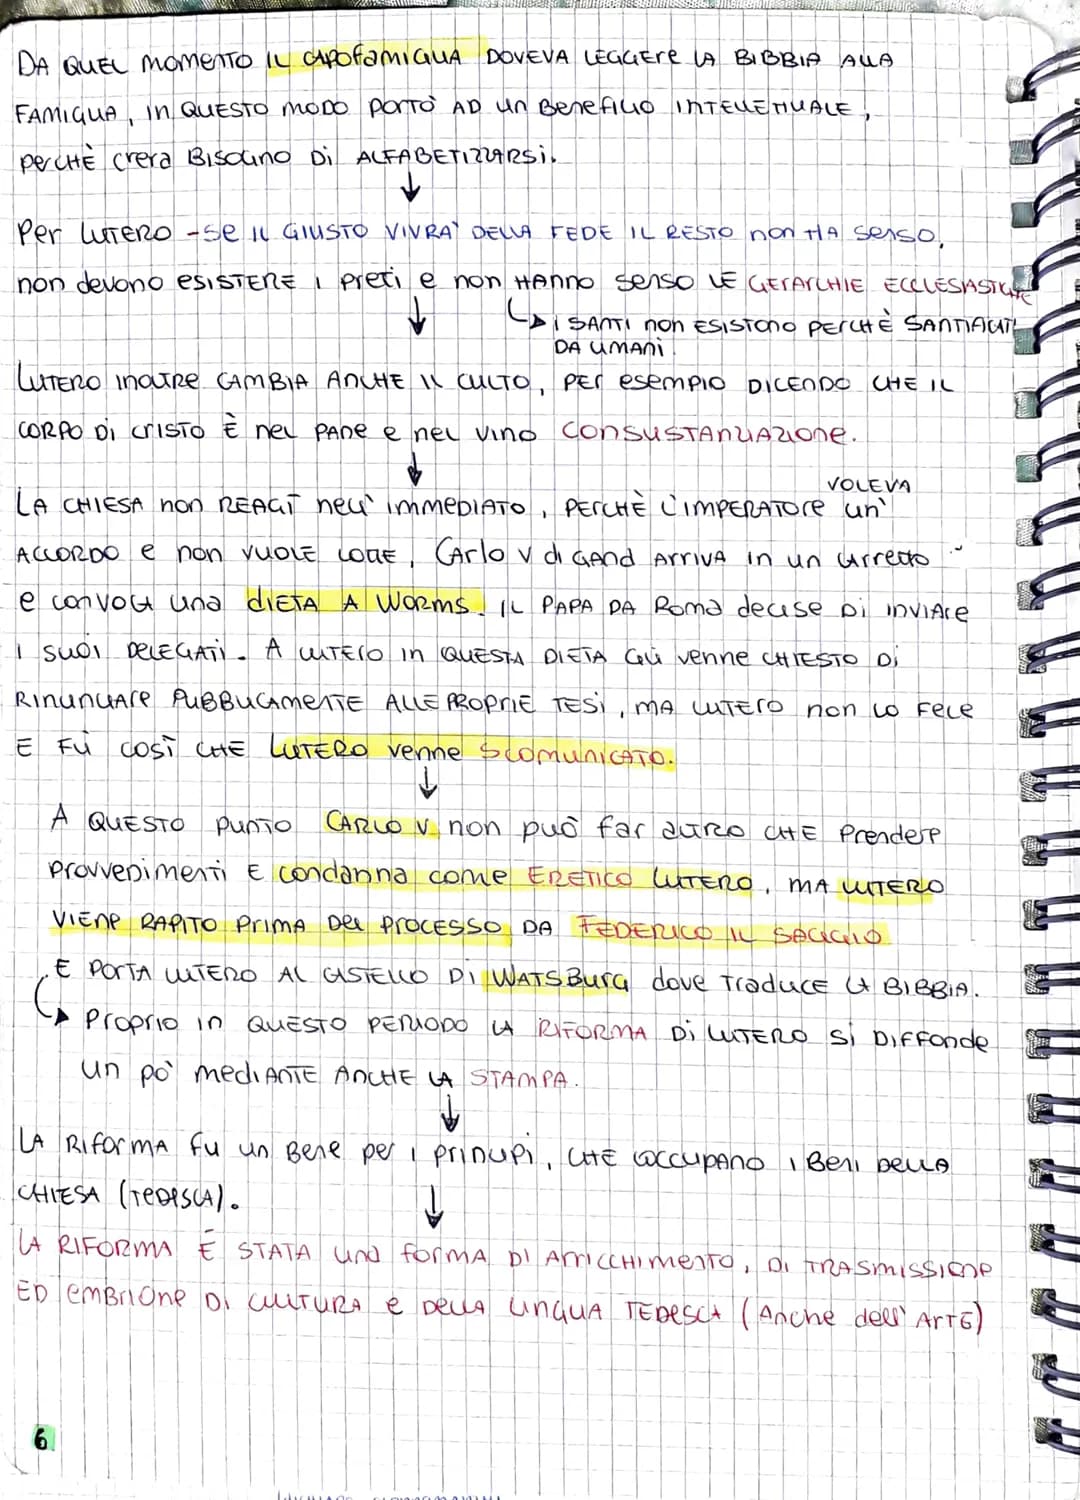 DA QUEL MOMENTO IL CAPOFAMIGLIA DOVEVA LEGGERE LA BIBBIA ALLA
FAMIGLIA, IN QUESTO MODO PORTÒ AD UN BENEFICIO INTELLETTUALE,
PERCHÈ C'ERA BISOGNO DI ALFABETIZZARSI.
↓
PER LUTERO - SE IL GIUSTO VIVRA' DELLA FEDE IL RESTO NON HA SENSO,
NON DEVONO ESISTERE I PRETI E NON HANNO SENSO LE GERARCHIE ECCLESIASTICHE
↓ ↳ I SANTI NON ESISTONO PERCHÈ SANTIFICATI
DA UMANI.
LUTERO INOLTRE CAMBIA ANCHE IL CULTO, PER ESEMPIO DICENDO CHE IL
CORPO DI CRISTO È NEL PANE E NEL VINO CONSUSTANZIAZIONE.
↓
VOLEVA
LA CHIESA NON REAGÌ NELL'IMMEDIATO, PERCHÈ L'IMPERATORE UN'
ACCORDO E NON VUOLE LOTTE, CARLO V DI GAND ARRIVA IN UN CARRETTO
E CONVOCA UNA DIETA A WORMS. IL PAPA DA ROMA DECISE DI INVIARE
I SUOI DELEGATI. A LUTERO IN QUESTA DIETA GLI VENNE CHIESTO DI
RINUNCIARE PUBBLICAMENTE ALLE PROPRIE TESI, MA LUTERO NON LO FECE
E FÙ COSÌ CHE LUTERO VENNE SCOMUNICATO.
↓
A QUESTO PUNTO CARLO V NON PUÒ FAR ALTRO CHE PRENDERE
PROVVEDIMENTI E CONDANNA COME ERETICO LUTERO, MA LUTERO
VIENE RAPITO PRIMA DEL PROCESSO DA FEDERICO IL SAGGIO
E PORTA LUTERO AL CASTELLO DI WATSBURG DOVE TRADUCE LA BIBBIA.
↳ PROPRIO IN QUESTO PERIODO LA RIFORMA DI LUTERO SI DIFFONDE
UN PO' MEDIANTE ANCHE LA STAMPA.
↓
LA RIFORMA FU UN BENE PER I PRINCIPI, CHE OCCUPANO I BENI DELLA
CHIESA (TEDESCA).
↓
LA RIFORMA È STATA UNA FORMA DI ARRICCHIMENTO, DI TRASMISSIONE
ED EMBRIONE DI CULTURA E DELLA LINGUA TEDESCA (ANCHE DELL'ARTE)
6